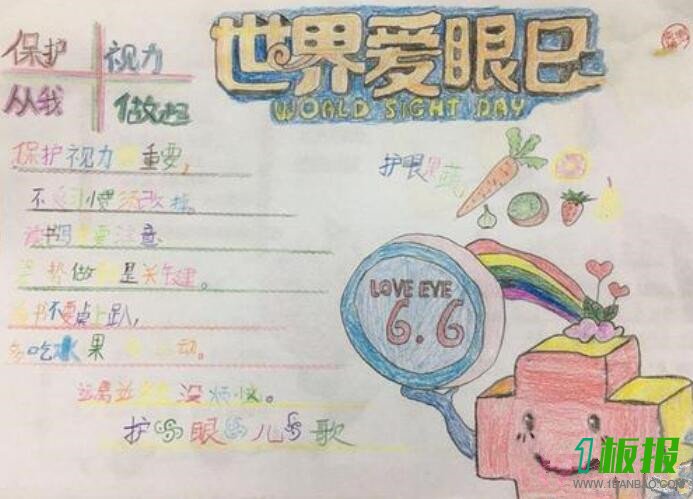 保护 视力
从我 做起
世界爱眼日
WORLD SIGHT DAY
保护视力 重要,
护眼果蔬
不 习惯 须改掉。
读书写 要注意
姿势做 是关键。
书不要桌上趴,
多吃水果 动。
远离近 没烦恼。
护眼儿歌
LOVE EYE
6.6
1板报
WWW.1BANBAO.COM